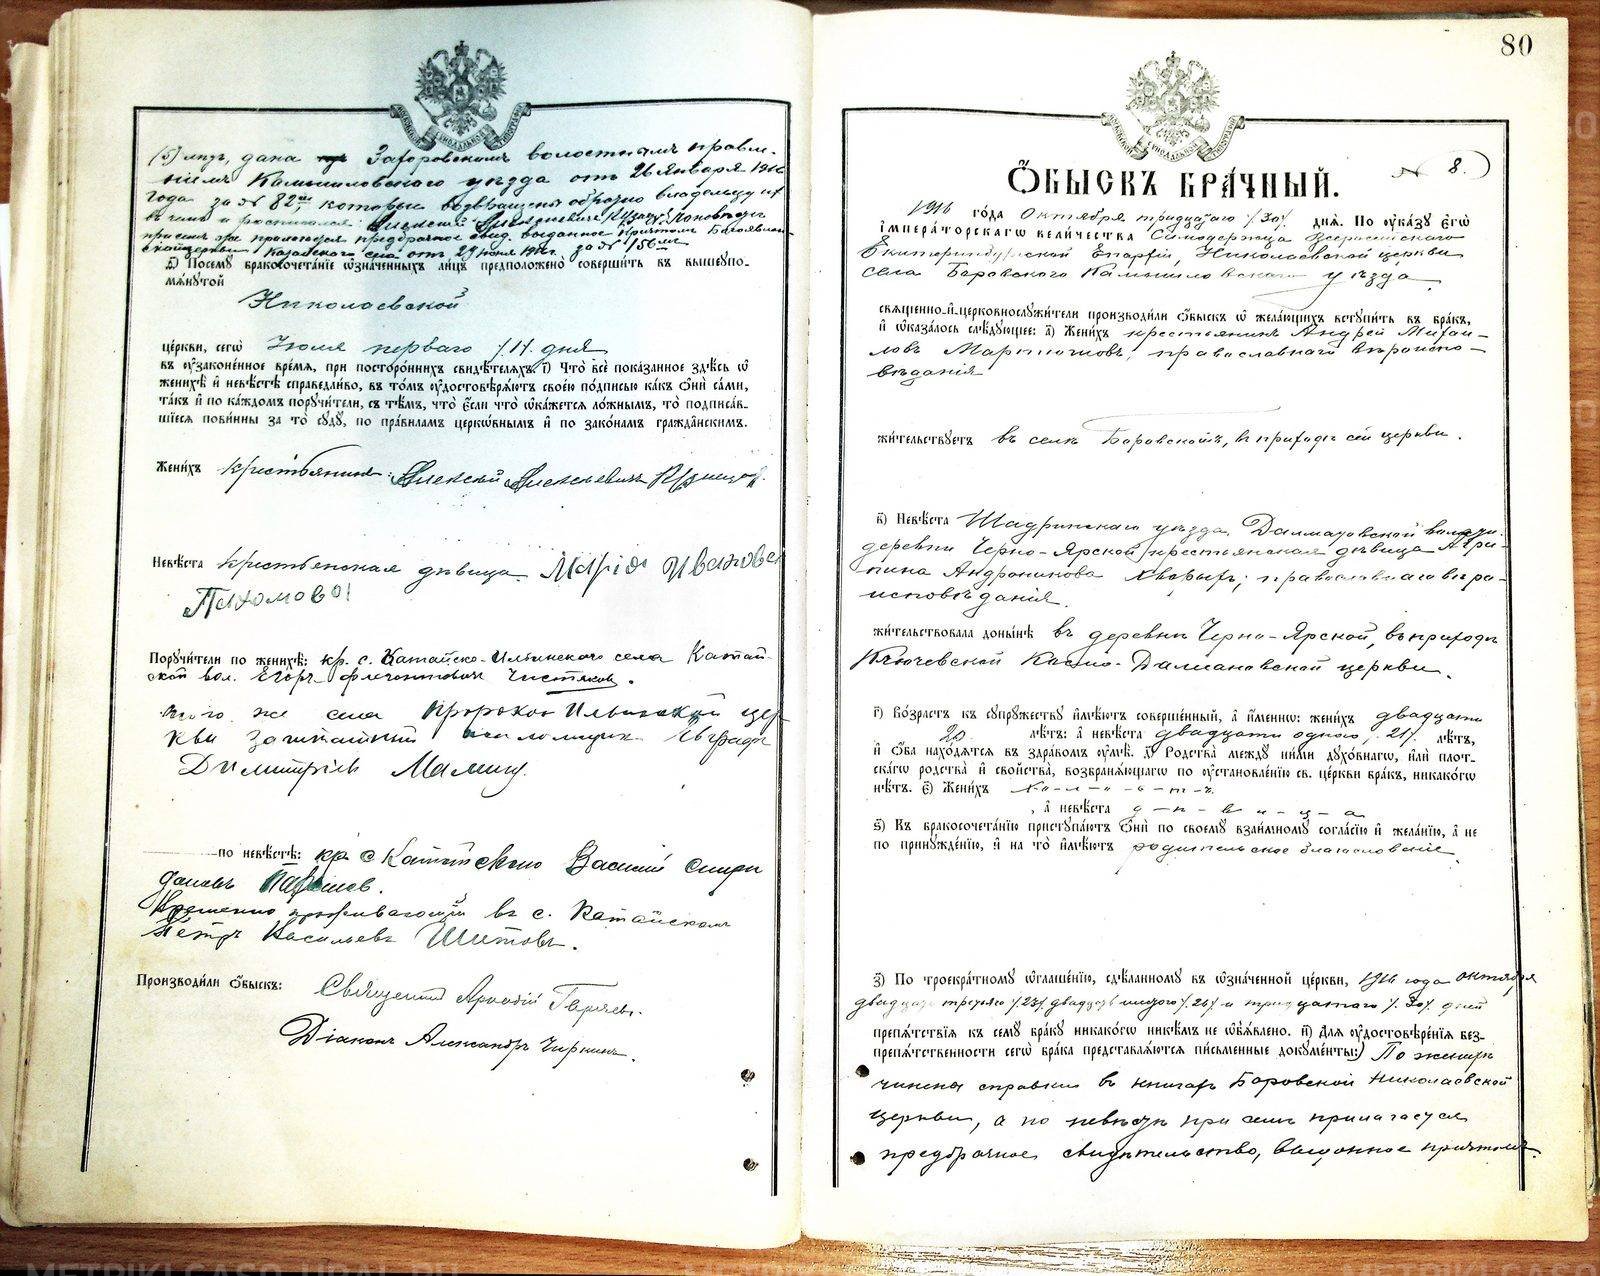 (5) лицъ, дана Загоровскимъ волостнымъ правле-
ніемъ Камышловскаго уѣзда отъ 26 Января 1916
года за № 82
Казанскаго села отъ 29 Іюня 1916 г. за № 156
Посему бракосочетаніе означенныхъ лицъ предположено совершить въ вышеупо-
мянутой
Николаевской
церкви, сего Іюля перваго /1/. дня
въ узаконенное время, при постороннихъ свидѣтеляхъ. і) Что всё показанное здѣсь о
женихѣ и невѣстѣ справедливо, въ томъ удостовѣряютъ своею подписью какъ они сами,
такъ и по каждомъ поручители, съ тѣмъ, что если что окажется ложнымъ, то подписав-
шіеся повинны за то суду, по правиламъ церковнымъ и по законамъ гражданскимъ.
Женихъ крестьянинъ Алексѣй Алексѣевичъ
Невѣста крестьянская дѣвица Марія Иванова
Пахомова
Поручители по женихѣ: кр. с. Катайско-Ильинскаго села Катай-
ской вол. Егоръ Чистяковъ.
того же села Пророко Ильинской цер
кви заштатный псаломщикъ
Димитріевъ Маминъ.
по невѣстѣ: кр. с Катайскаго Василій Спири
доновъ
Временно проживающій въ с. Катайскомъ
Петръ Васильевъ Шитовъ.
Производили обыскъ: Священникъ Аркадій Гаряевъ.
Діаконъ Александръ Чиркинъ.
80
Обыскъ брачный. № 8.
1916 года Октября тридцатаго /30/ дня. По указу Его
Императорскаго Величества Самодержца Всероссійскаго
Екатеринбургской Епархіи, Николаевской церкви
села Боровскаго Камышловскаго уѣзда
священно-и-церковнослужители производили обыскъ о желающихъ вступить въ бракъ,
и оказалось слѣдующее: а) Женихъ крестьянинъ Андрей Михаи-
ловъ Мартюшовъ, православнаго вѣроиспо-
вѣданія
жительствуетъ въ селѣ Боровскомъ, въ приходѣ сей церкви.
в) Невѣста Шадринскаго уѣзда, Далматовской волости
деревни Черно-Ярской крестьянская дѣвица Агри-
пина Андроникова Хворыхъ; православнаго вѣро-
исповѣданія.
жительствовала донынѣ въ деревнѣ Черно-Ярской, въ приходѣ
Ключевской Космо-Даміановской церкви.
г) Возрастъ къ супружеству имѣютъ совершенный, а именно: женихъ двадцати
20 лѣтъ: а невѣста двадцати одного, 21/. лѣтъ,
и оба находятся въ здравомъ умѣ. д) Родства между ними духовнаго, или плот-
скаго родства и свойства, возбраняющаго по установленію св. церкви бракъ, никакого
нѣтъ. е) Женихъ х-о-л-о-с-т-ъ
, а невѣста д-ѣ-в-и-ц-а
ѕ) Къ бракосочетанію приступаютъ они по своему взаимному согласію и желанію, а не
по принужденію, и на то имѣютъ родительское благословеніе.
з) По троекратному оглашенію, сдѣланному въ означенной церкви, 1916 года октября
двадцать третьяго /23/ двадцать шестого /. 26/ и тридцатаго /. 30/. дней
препятствія къ сему браку никакого никѣмъ не объявлено. и) Для удостовѣренія без-
препятственности сего брака представляются письменные документы:) По женихѣ
чинена справка въ книгахъ Боровской Николаевской
церкви, а по невѣстѣ при семъ прилагается
предбрачное свидѣтельство, выданное причтомъ